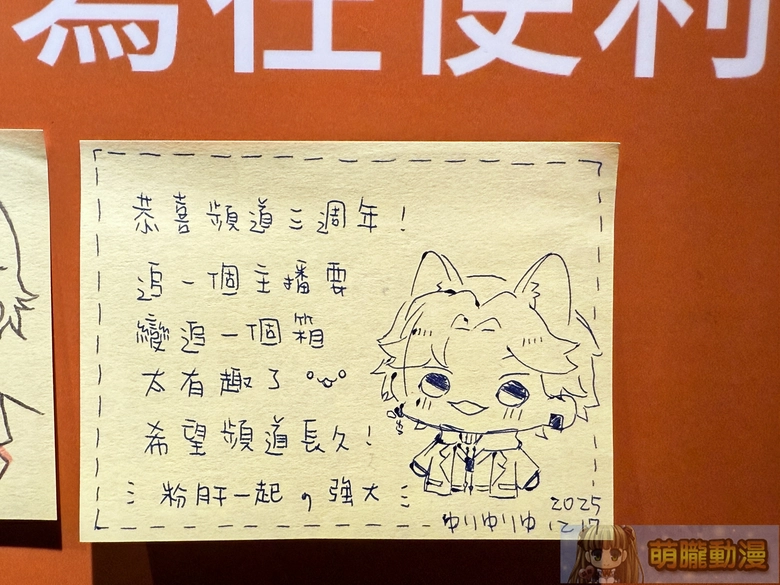 為任便利
恭喜頻道三週年!
追一個主播要
變追一個箱
太有趣了
希望頻道長久!
粉肝一起,強大
2025
ゆりゆりゆ 12.17
萌朧動漫